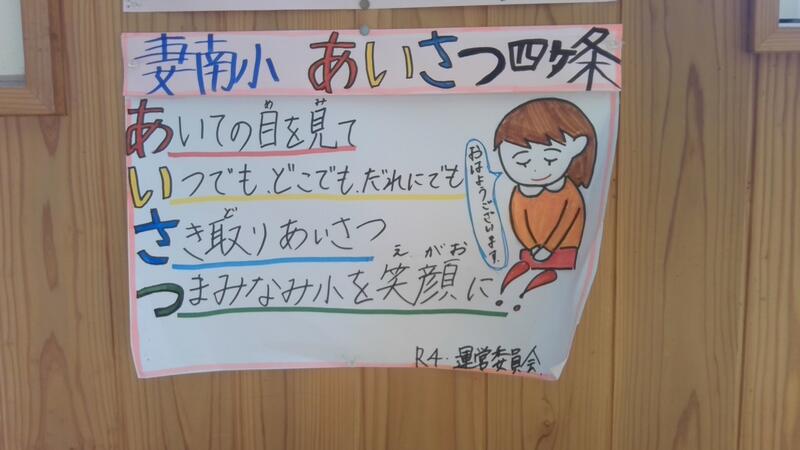 妻南小 あいさつ四ヶ条
あいての目を見て
いつでも、どこでも、だれにでも
さき取りあいさつ
つまみなみ小を笑顔に!!
おはようございます。
R4.運営委員会